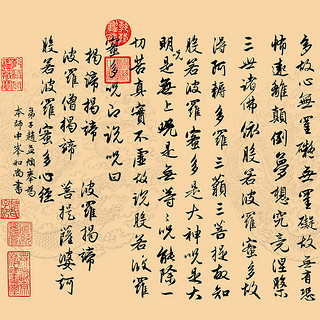 多故心無罣礙無罣礙故無有恐
怖遠離顛倒夢想究竟涅槃
三世諸佛依般若波羅蜜多故
得阿耨多羅三藐三菩提故知
般若波羅蜜多是大神咒是大
明咒是無上咒是無等等咒能除一
切苦真實不虛故說般若波羅
蜜多咒即說咒曰
揭諦揭諦 波羅揭諦
波羅僧揭諦 菩提薩婆訶
般若波羅蜜多心經
弟子趙孟頫奉為
本師中峯和尚書